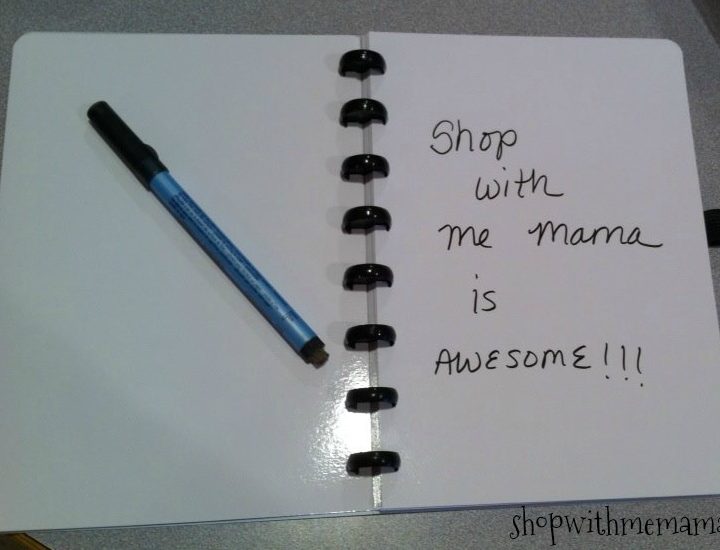 Shop
with
me Mama
is
AWESOME!!!
shopwithmemama